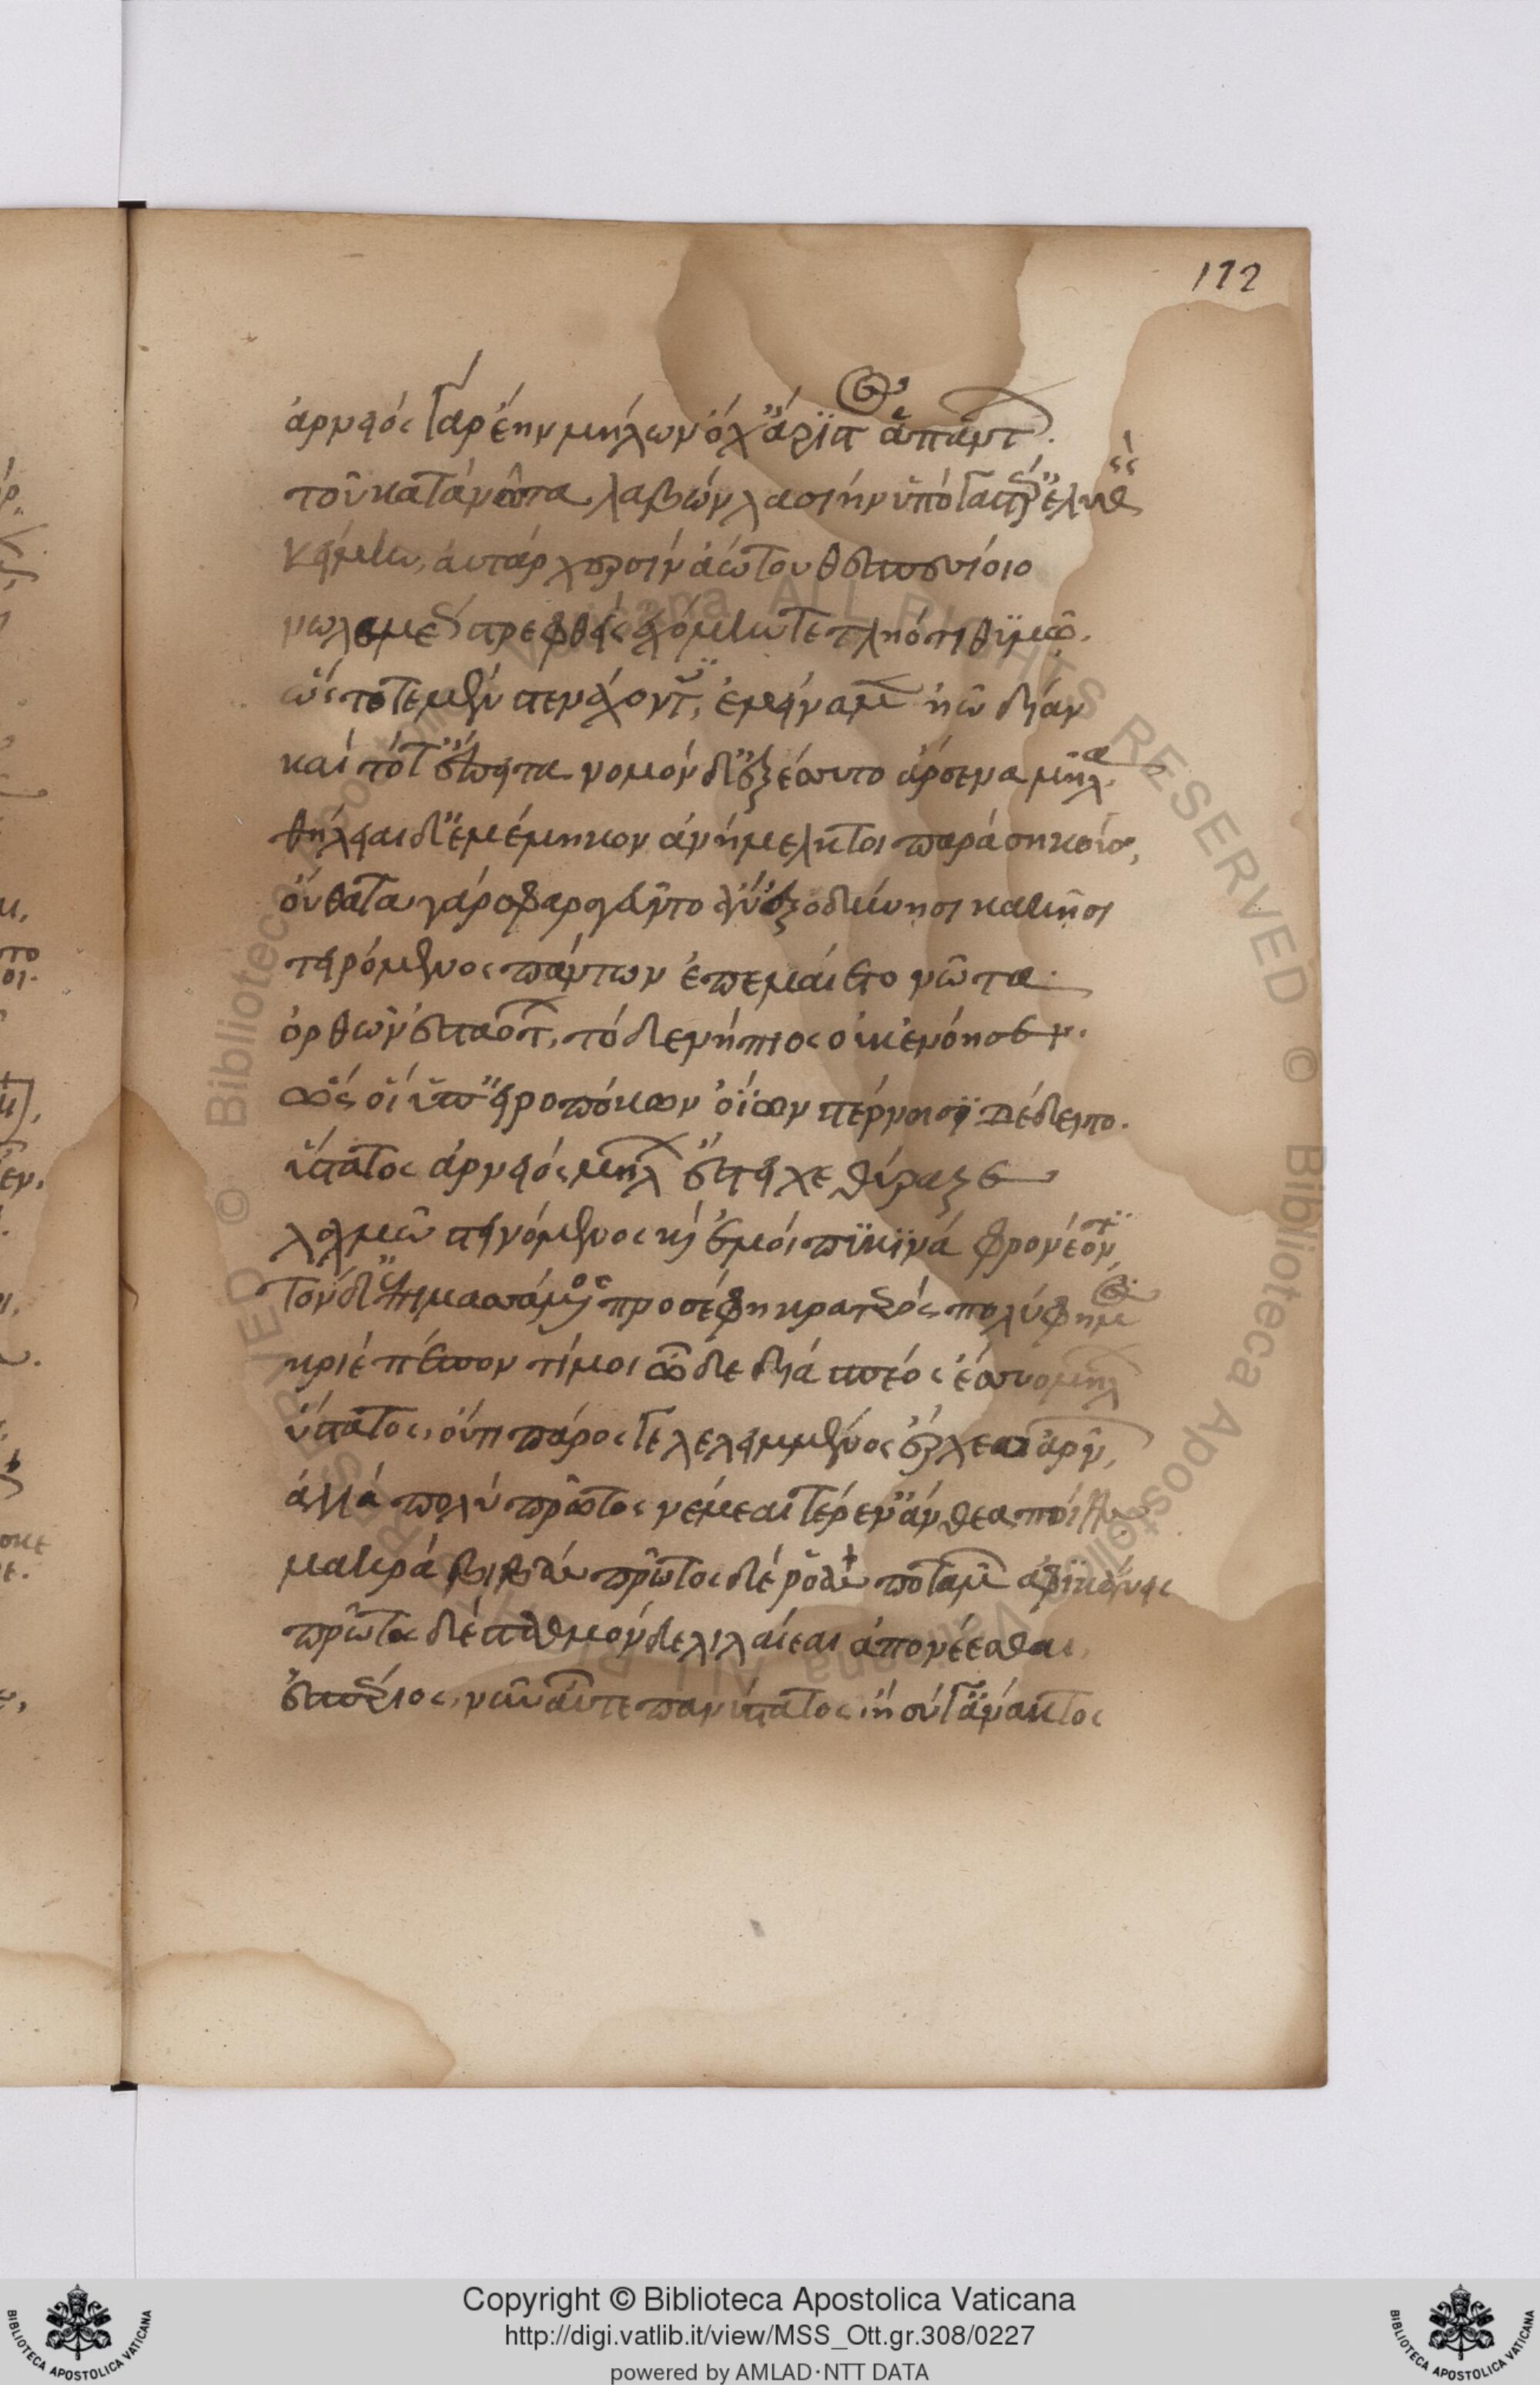 112
ἀρνειὸς γὰρ ἔην μήλων ὄχ' ἄριστος ἁπάντων.
τοῦ κατὰ νῶτα λαβὼν λασίην ὑπὸ γαστέρ' ἐλυσθεὶς
κείμην, αὐτὰρ χερσὶν ἀώτου θεσπεσίοιο
νωλεμέως στρεφθεὶς ἐχόμην τετληότι θυμῷ.
ὣς τότε μὲν στενάχοντες, ἐμείναμεν ἠῶ δῖαν
καὶ τότ' ἔπειτα νομὸν δ' ἐξέσσυτο ἄρσενα μῆλα.
θήλειαι δ' ἐμέμηκον ἀνήμελκτοι παρὰ σηκούς,
οὔθατα γὰρ σφαραγεῦντο ἄναξ ὀδύνῃσι κακῇσι
τειρόμενος πάντων ἐπεμαίετο νῶτα.
ὀρθῶν ἑσταότων, τὸ δὲ νήπιος οὐκ ἐνόησεν.
ὥς οἱ ὑπ' εἰροπόκων ὀΐων στέρνοισι δέδεντο.
ὕστατος ἀρνειὸς μήλων ἔστειχε θύραζε
λάχμῳ στεινόμενος καὶ ἐμοὶ πυκινὰ φρονέοντι,
τὸν δ' ἐπιμασσάμενος προσέφη κρατερὸς πολύφημος
κριὲ πέπον τί μοι ὧδε διὰ σπέος ἔσσυο μήλων
ὕστατος, οὔτι πάρος γε λελειμμένος ἔρχεαι ἀρνῶν,
ἀλλὰ πολὺ πρῶτος νέμεαι τέρεν' ἄνθεα ποίης
μακρὰ βιβὰς πρῶτος δὲ ῥοὰς ποταμῶν ἀφικάνεις
πρῶτα δὲ σταθμόνδε λιλαίεαι ἀπονέεσθαι,
ἑσπέριος, νῦν αὖτε πανύστατος, ἦ σύ γ' ἄνακτος
Copyright © Biblioteca Apostolica Vaticana
http://digi.vatlib.it/view/MSS_Ott.gr.308/0227
powered by AMLAD·NTT DATA